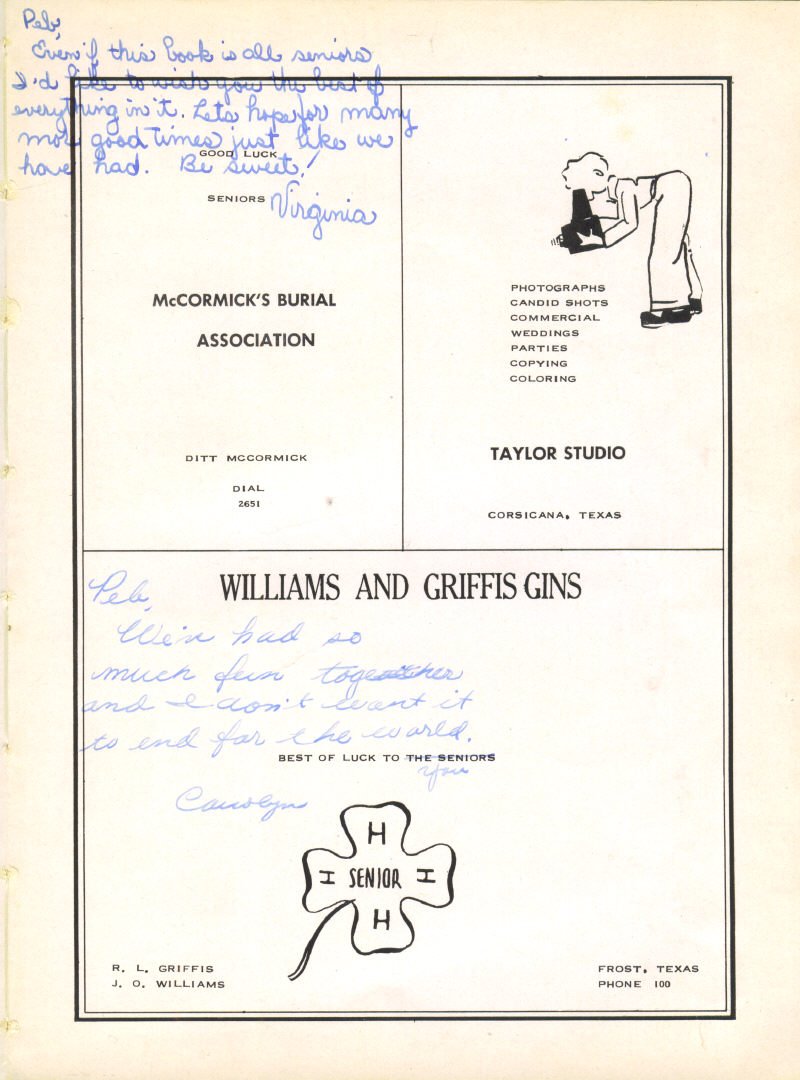 Peb,
Even if this book is all seniors
I'd like to wish you the best of
everything in it. Lets hope for many
more good times just like we
have had. Be sweet!
Virginia
GOOD LUCK
SENIORS
McCORMICK'S BURIAL
ASSOCIATION
DITT MCCORMICK
DIAL
2651
PHOTOGRAPHS
CANDID SHOTS
COMMERCIAL
WEDDINGS
PARTIES
COPYING
COLORING
TAYLOR STUDIO
CORSICANA, TEXAS
WILLIAMS AND GRIFFIS GINS
Peb,
We've had so
much fun together
and I don't want it
to end for the world.
BEST OF LUCK TO THE SENIORS
you
Carolyn
H
I SENIOR I
H
R. L. GRIFFIS
J. O. WILLIAMS
FROST, TEXAS
PHONE 100